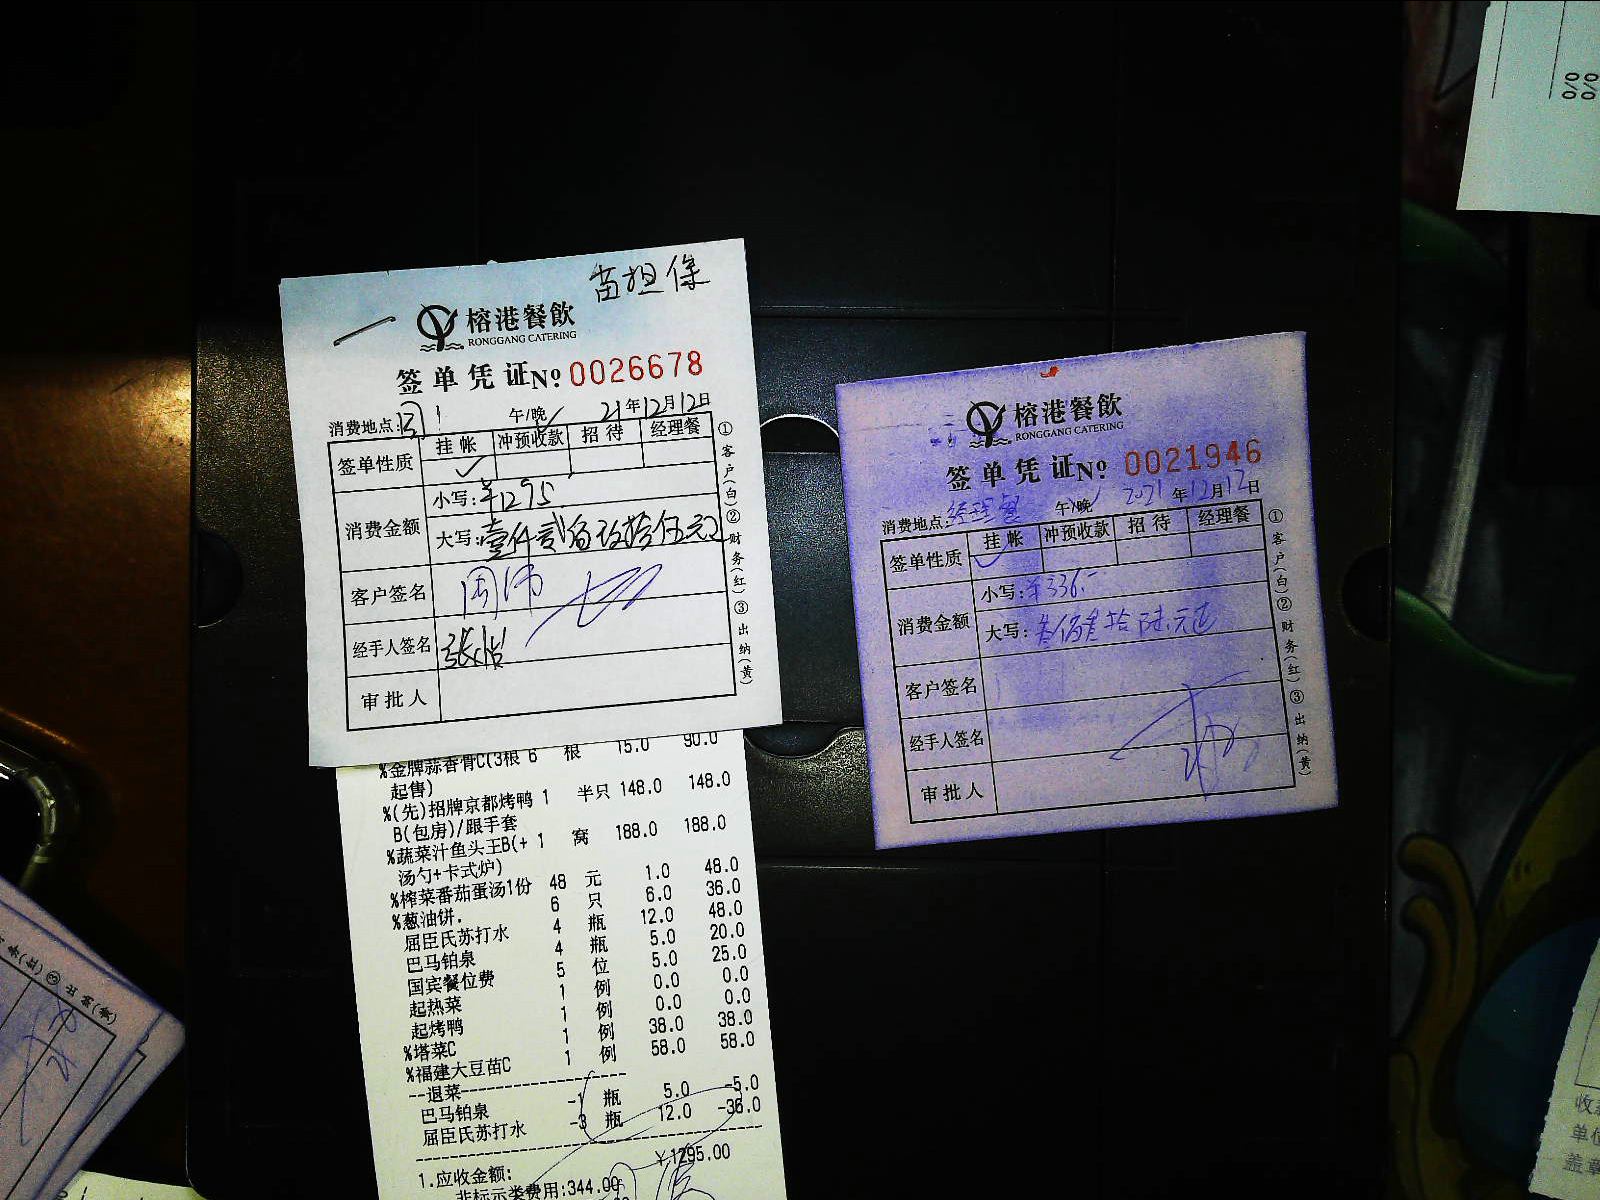 苗担保
榕港餐飲
RONGGANG CATERING
签单凭证No 0026678
消费地点: 午/晚 21年12月12日
签单性质 挂帐 冲预收款 招待 经理餐
✓
消费金额 小写:¥1295
大写:壹仟贰佰玖拾伍元正
客户签名 周沛
经手人签名 张怡
审批人
①客户(白)②财务(红)③出纳(黄)
%金牌蒜香骨C(3根 6 根 15.0 90.0
起售)
%(先)招牌京都烤鸭 1 半只 148.0 148.0
B(包房)/跟手套
%蔬菜汁鱼头王B(+ 1 窝 188.0 188.0
汤勺+卡式炉)
%榨菜番茄蛋汤1份 48 元 1.0 48.0
%葱油饼. 6 只 6.0 36.0
屈臣氏苏打水 4 瓶 12.0 48.0
巴马铂泉 4 瓶 5.0 20.0
国宾餐位费 5 位 5.0 25.0
起热菜 1 例 0.0 0.0
起烤鸭 1 例 0.0 0.0
%塔菜C 1 例 38.0 38.0
%福建大豆苗C 1 例 58.0 58.0
--退菜--
巴马铂泉 -1 瓶 5.0 -5.0
屈臣氏苏打水 -3 瓶 12.0 -36.0
1.应收金额: ¥1295.00
非标示类费用:344.00
榕港餐飲
RONGGANG CATERING
签单凭证No 0021946
消费地点:经理餐 午/晚 2021年12月12日
签单性质 挂帐 冲预收款 招待 经理餐
✓
消费金额 小写:¥336.-
大写:叁佰叁拾陆元正
客户签名
经手人签名
审批人
①客户(白)②财务(红)③出纳(黄)
务(红)③出纳(黄)
0/0
0/0
收
单位
盖章